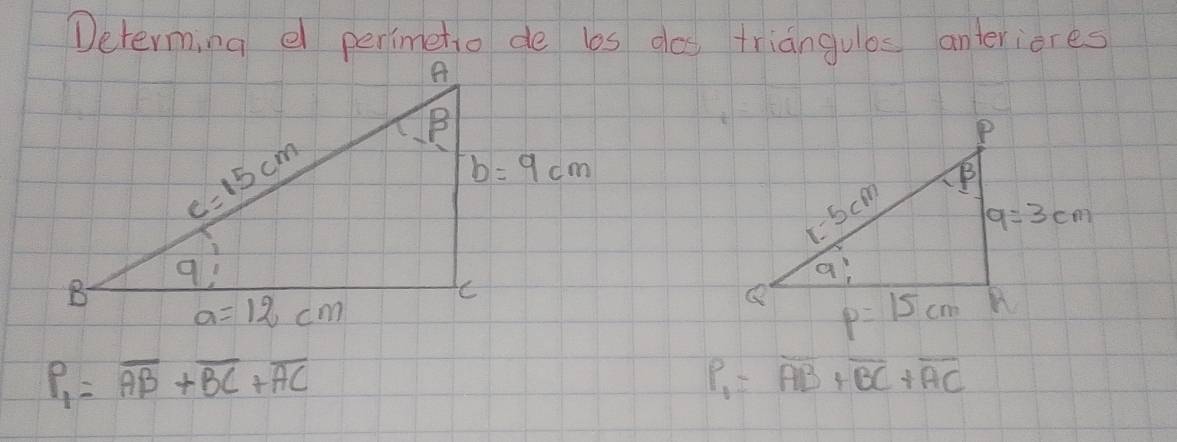 Determina el perímetro de los dos triángulos anteriores
A
β
c=15 cm
b=9 cm
α
B
C
a=12 cm
P
β
r=5cm
q=3cm
α
Q
p=15cm R
P₁= A̅B̅ + B̅C̅ + A̅C̅
P₁= A̅B̅ + B̅C̅ + A̅C̅